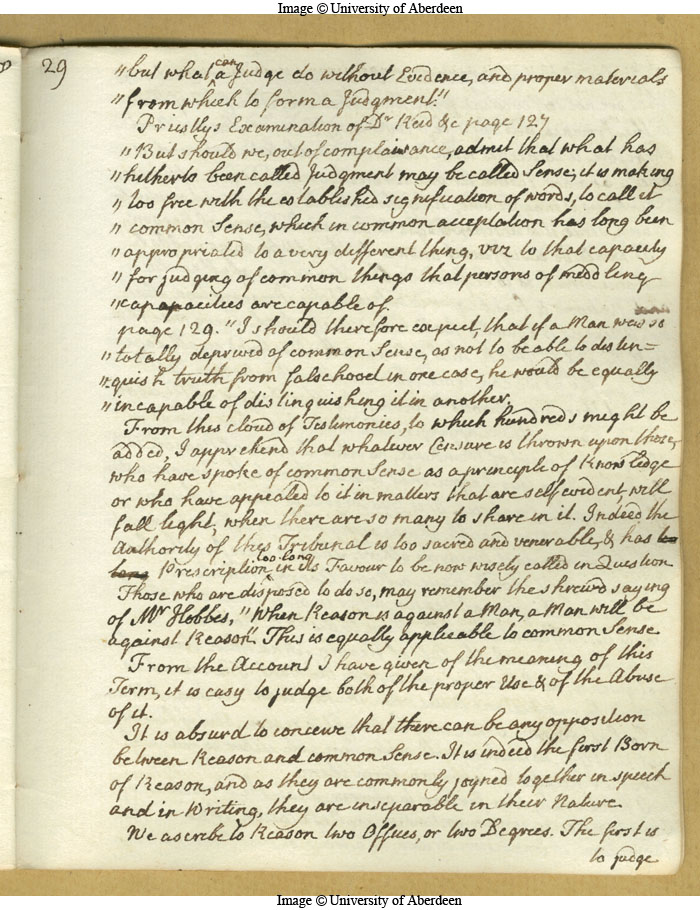 Image © University of Aberdeen
29
" but what can a Judge do without Evidence, and proper materials
" from which to form a Judgment."
Priestlys Examination of Dr Reid &c page 127
" But should we, out of complaisance, admit that what has
" hitherto been called Judgment may be called Sense, it is making
" too free with the established signification of words, to call it
" common Sense, which in common acceptation has long been
" appropriated to a very different thing, viz to that capacity
" for judging of common things that persons of middling
" capapacities are capable of.
page 129. " I should therefore expect, that if a Man was so
" totally deprived of common Sense, as not to be able to distin=
" guish truth from falsehood in one case, he would be equally
" incapable of distinguishing it in another.
From this cloud of Testimonies, to which hundreds might be
added, I apprehend that whatever Censure is thrown upon those,
who have spoke of common Sense as a principle of Knowledge
or who have appealed to it in matters that are self evident, will
fall light, when there are so many to share in it. Indeed the
Authority of this Tribunal is too sacred and venerable, & has too
long Prescription too long in its Favour to be now wisely called in Question
Those who are disposed to do so, may remember the shrewd saying
of Mr Hobbes, " When Reason is against a Man, a Man will be
against Reason". This is equally applicable to common Sense.
From the Account I have given of the meaning of this
Term, it is easy to judge both of the proper Use & of the Abuse
of it.
It is absurd to conceive that there can be any opposition
between Reason and common Sense. It is indeed the first Born
of Reason, and as they are commonly joyned together in speech
and in Writing, they are inseparable in their Nature.
We ascribe to Reason two Offices, or two Degrees. The first is
to judge
Image © University of Aberdeen